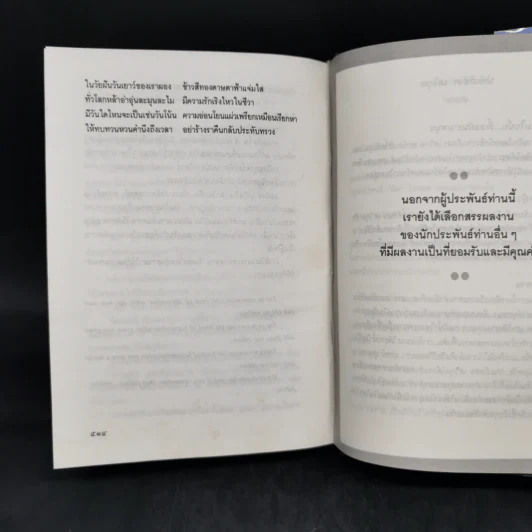 ในวัยฝันวันเยาว์ของเราผอง ข้าวสีทองดาษดาฟ้าแจ่มใส
ทั่วโลกหล้าอ่าอุ่นละมุนละไม มีความรักเริงไหวในชีวา
มีวันใดไหนจะเป็นเช่นวันโน้น ความอ่อนโยนแผ่วเพรียกเหมือนเรียกหา
ให้ทบทวนหวนคำนึงถึงเวลา อย่าร้างราคืนกลับประทับทรวง
๕๑๔
นอกจากผู้ประพันธ์ท่านนี้
เรายังได้เลือกสรรผลงาน
ของนักประพันธ์ท่านอื่น ๆ
ที่มีผลงานเป็นที่ยอมรับและมีคุณค่